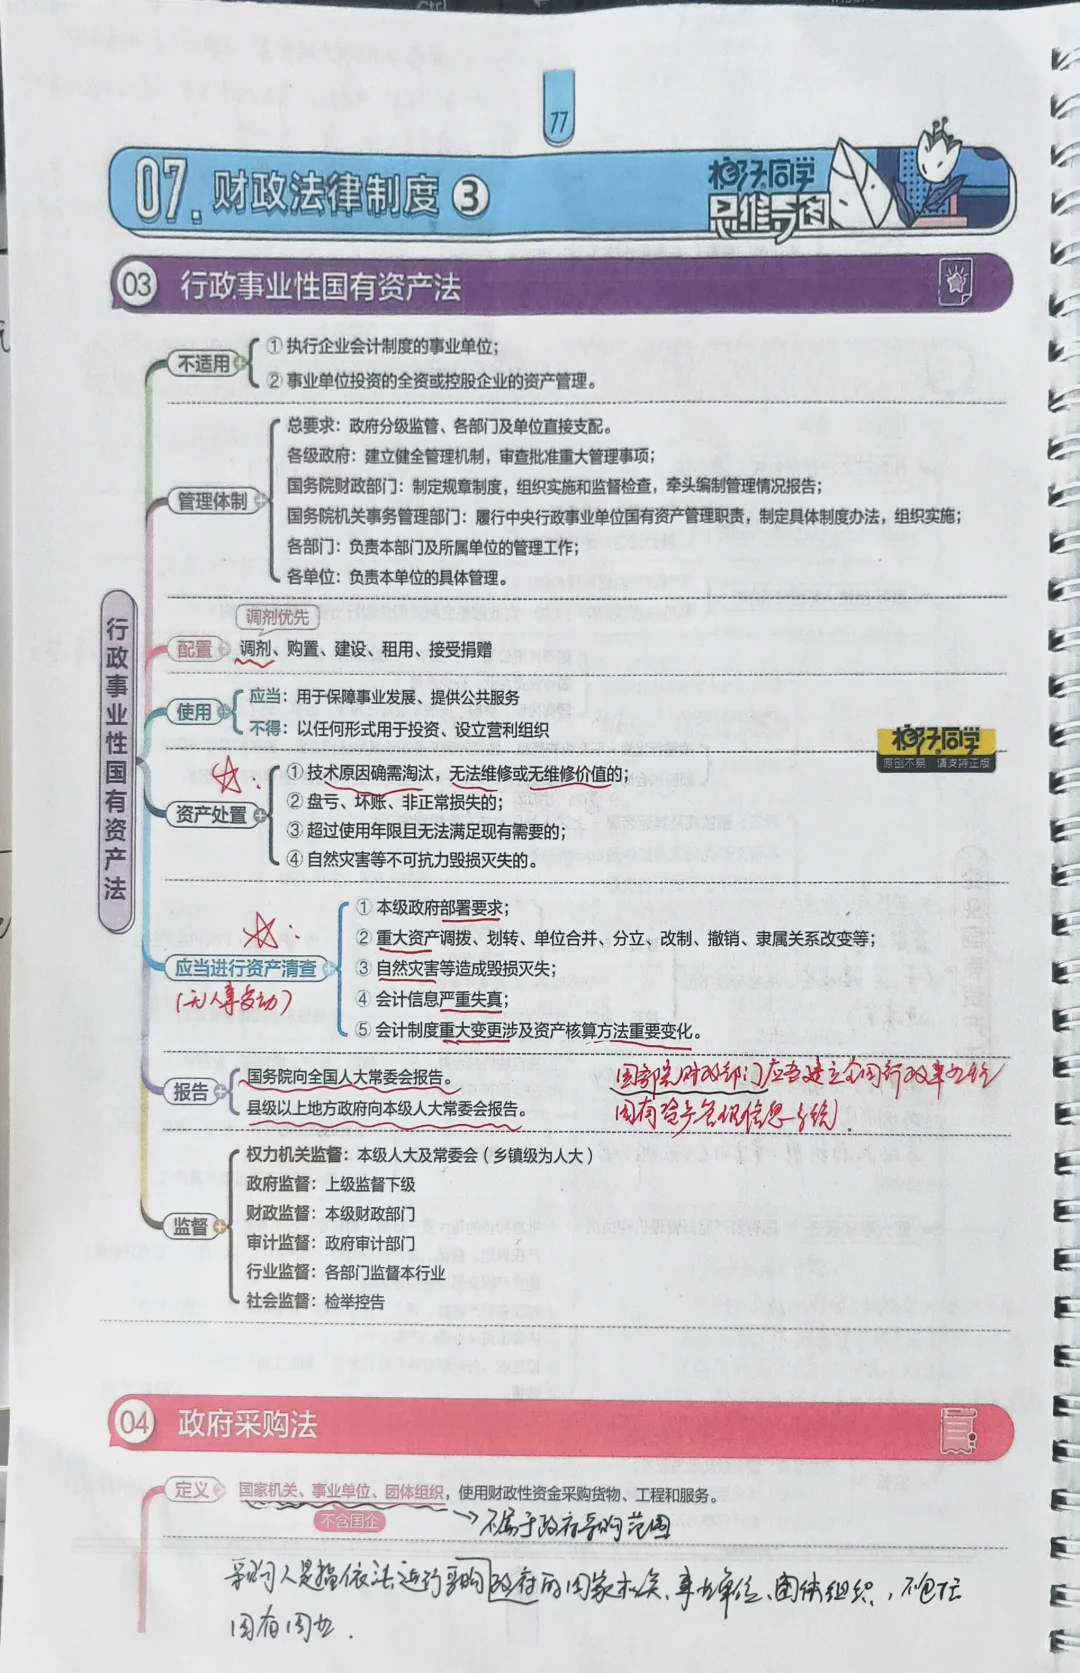 77
07. 财政法律制度 3
椰子同学
思维导图
03 行政事业性国有资产法
行政事业性国有资产法
不适用
① 执行企业会计制度的事业单位；
② 事业单位投资的全资或控股企业的资产管理。
管理体制
总要求：政府分级监管、各部门及单位直接支配。
各级政府：建立健全管理机制，审查批准重大管理事项；
国务院财政部门：制定规章制度，组织实施和监督检查，牵头编制管理情况报告；
国务院机关事务管理部门：履行中央行政事业单位国有资产管理职责，制定具体制度办法，组织实施；
各部门：负责本部门及所属单位的管理工作；
各单位：负责本单位的具体管理。
调剂优先
配置 调剂、购置、建设、租用、接受捐赠
使用
应当：用于保障事业发展、提供公共服务
不得：以任何形式用于投资、设立营利组织
椰子同学
原创不易 请支持正版
资产处置
① 技术原因确需淘汰，无法维修或无维修价值的；
② 盘亏、坏账、非正常损失的；
③ 超过使用年限且无法满足现有需要的；
④ 自然灾害等不可抗力毁损灭失的。
应当进行资产清查
① 本级政府部署要求；
② 重大资产调拨、划转、单位合并、分立、改制、撤销、隶属关系改变等；
③ 自然灾害等造成毁损灭失；
④ 会计信息严重失真；
⑤ 会计制度重大变更涉及资产核算方法重要变化。
（无人享变动）
报告
国务院向全国人大常委会报告。
县级以上地方政府向本级人大常委会报告。
国务院财政部门应当建立全国行政事业性
国有资产管理信息系统.
监督
权力机关监督：本级人大及常委会（乡镇级为人大）
政府监督：上级监督下级
财政监督：本级财政部门
审计监督：政府审计部门
行业监督：各部门监督本行业
社会监督：检举控告
04 政府采购法
定义 国家机关、事业单位、团体组织，使用财政性资金采购货物、工程和服务。
不含国企
→不属于政府采购范围
采购人是指依法进行采购政府的国家机关、事业单位、团体组织，不包括
国有国企.